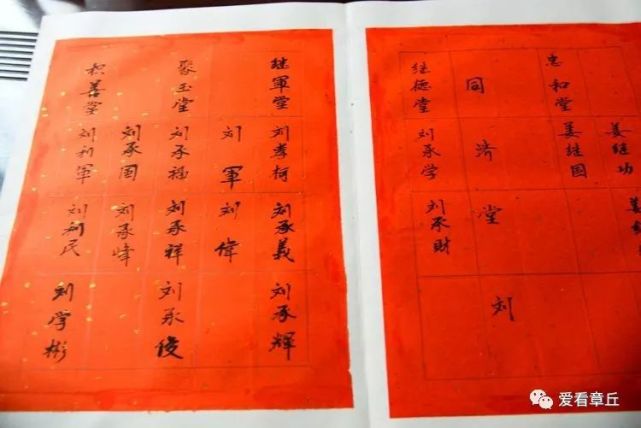 姜继功 姜
忠和堂 姜继国
同济堂 刘
继德堂 刘承学 刘承財
继軍堂 刘孝柯 刘承義 刘承輝
刘軍 刘偉
聚玉堂 刘承福 刘承祥 刘承俊
刘承国 刘承峰
积善堂 刘利軍 刘利民 刘学彬
爱看章丘